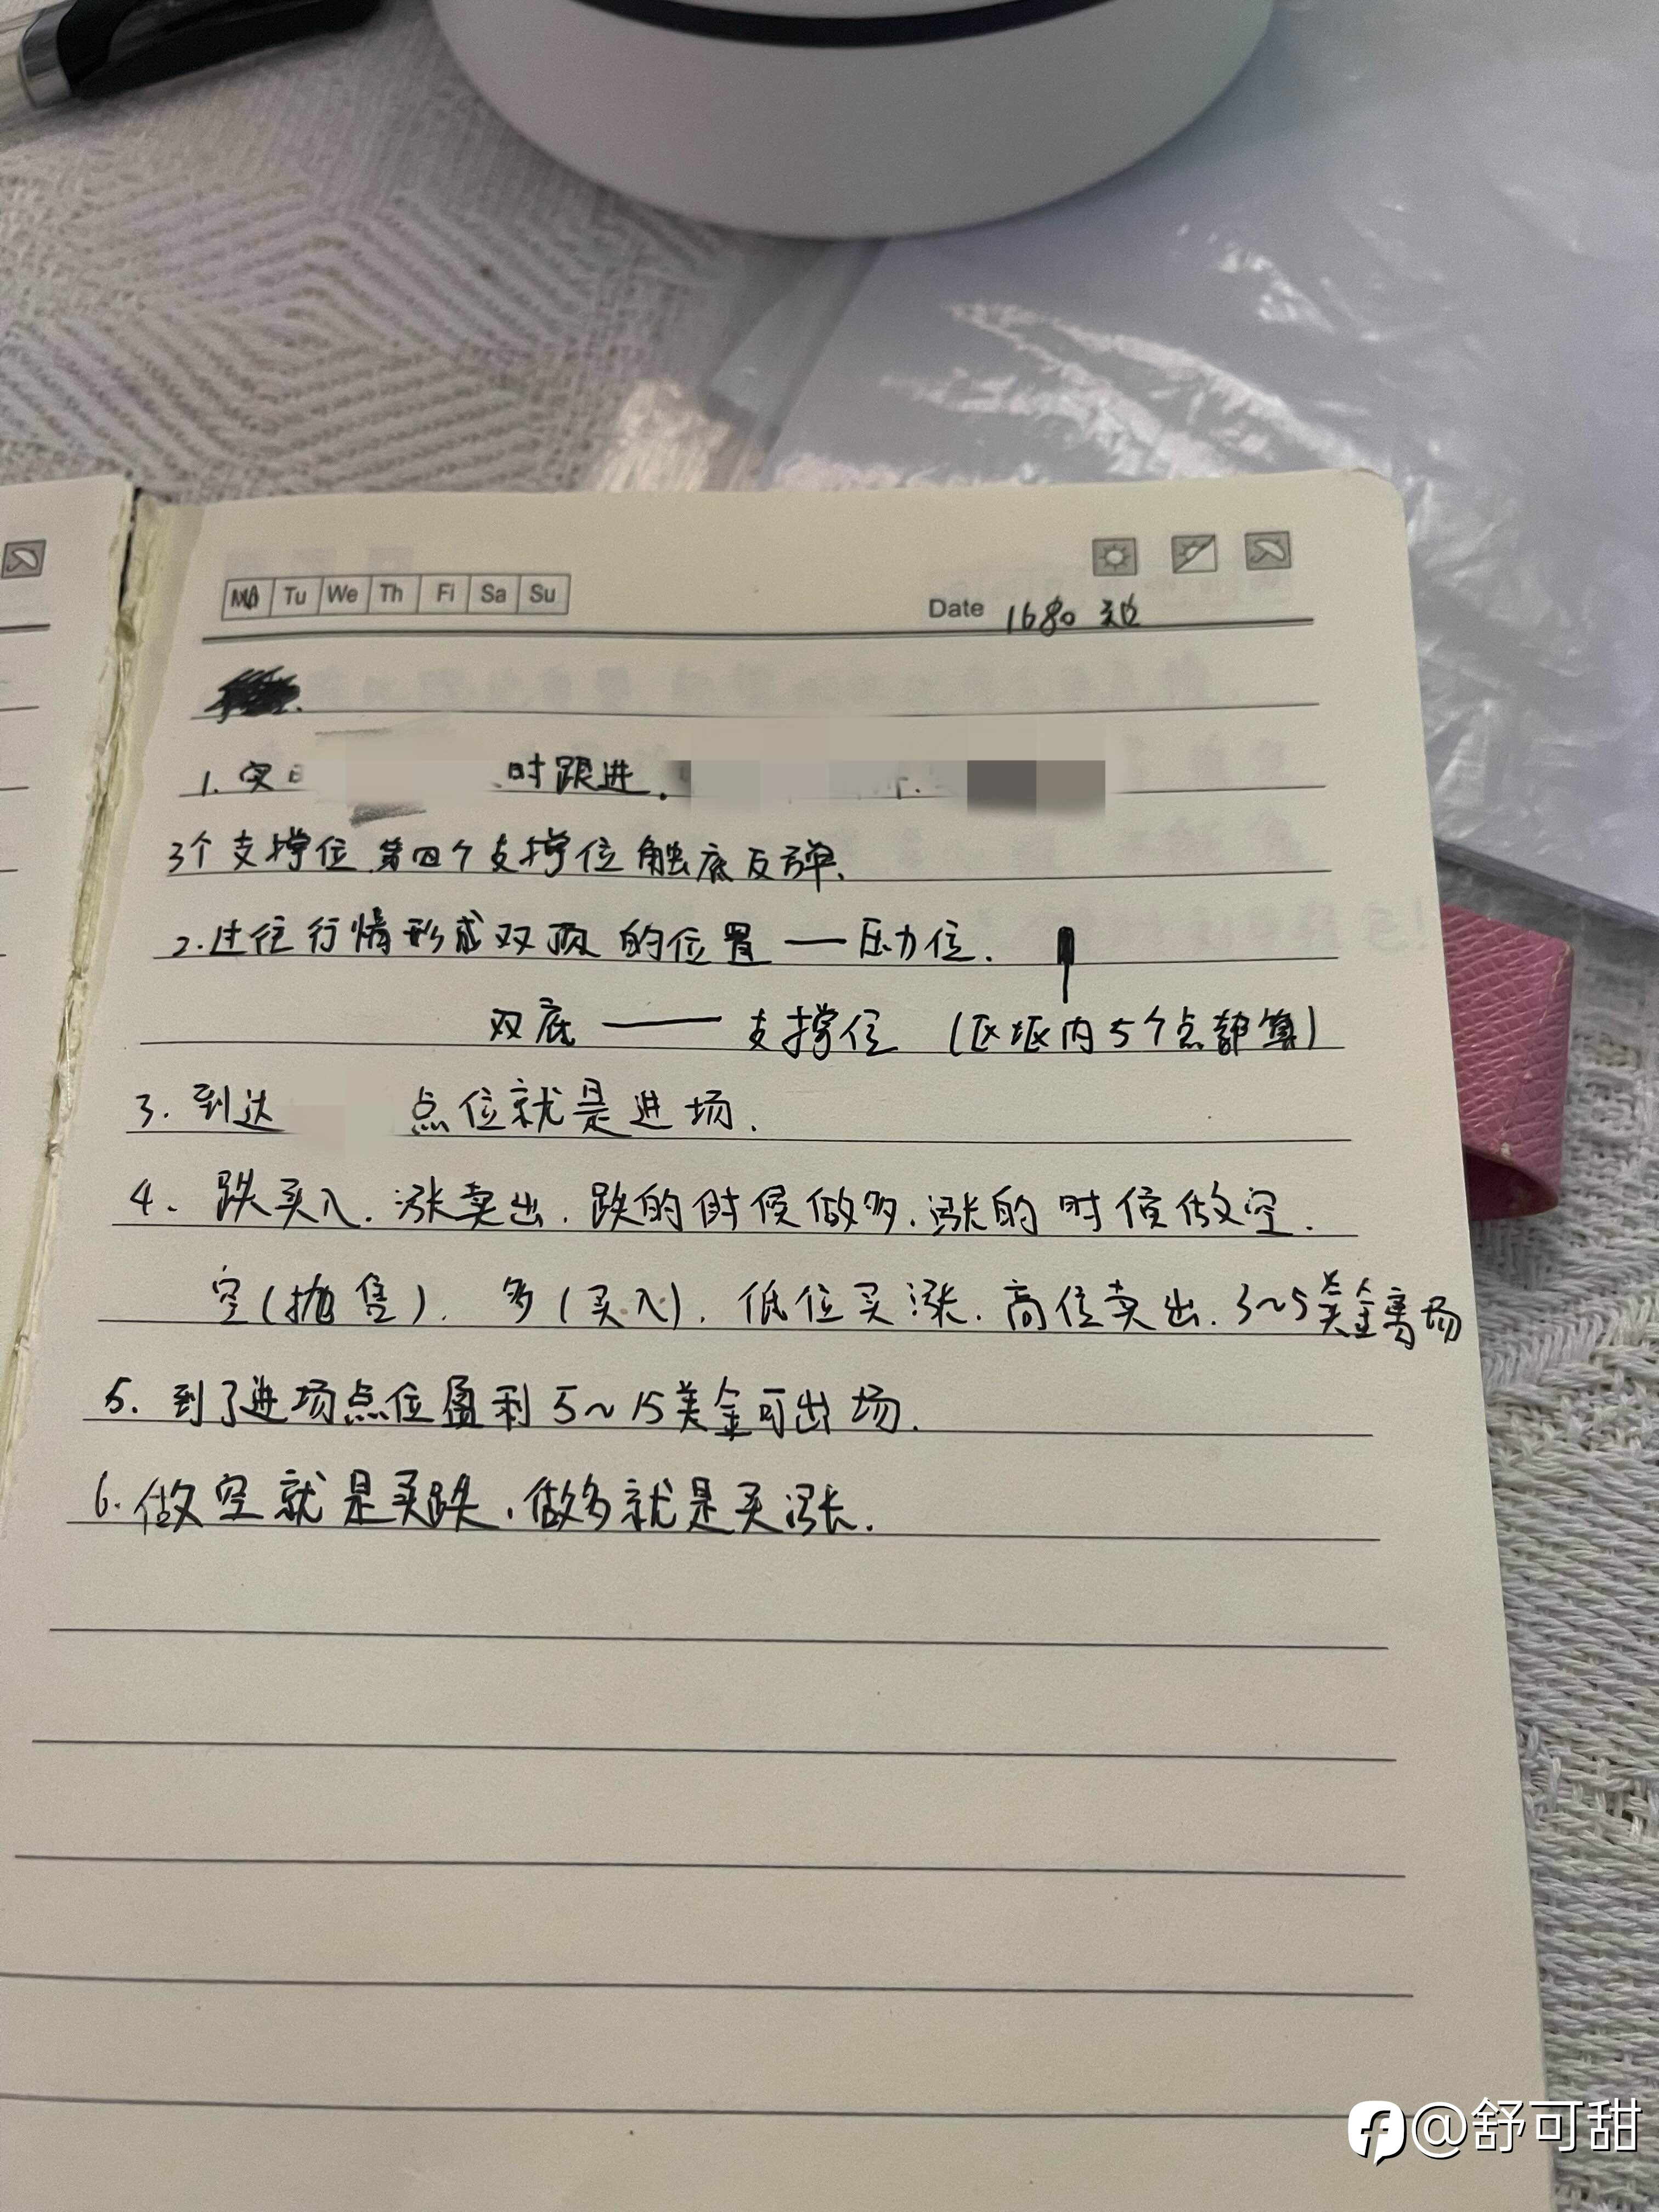 Mo Tu We Th Fi Sa Su
Date 1680
1. 时跟进.
3个支撑位.第四个支撑位触底反弹.
2.过往行情形成双顶的位置——压力位.
双底——支撑位 (区域内5个点都算)
3. 到达 点位就是进场.
4. 跌买入.涨卖出.跌的时候做多.涨的时候做空.
空(抛售). 多(买入). 低位买涨.高位卖出.3~5美金离场
5. 到了进场点位盈利5~15美金可出场.
6.做空就是买跌.做多就是买涨.
@舒可甜